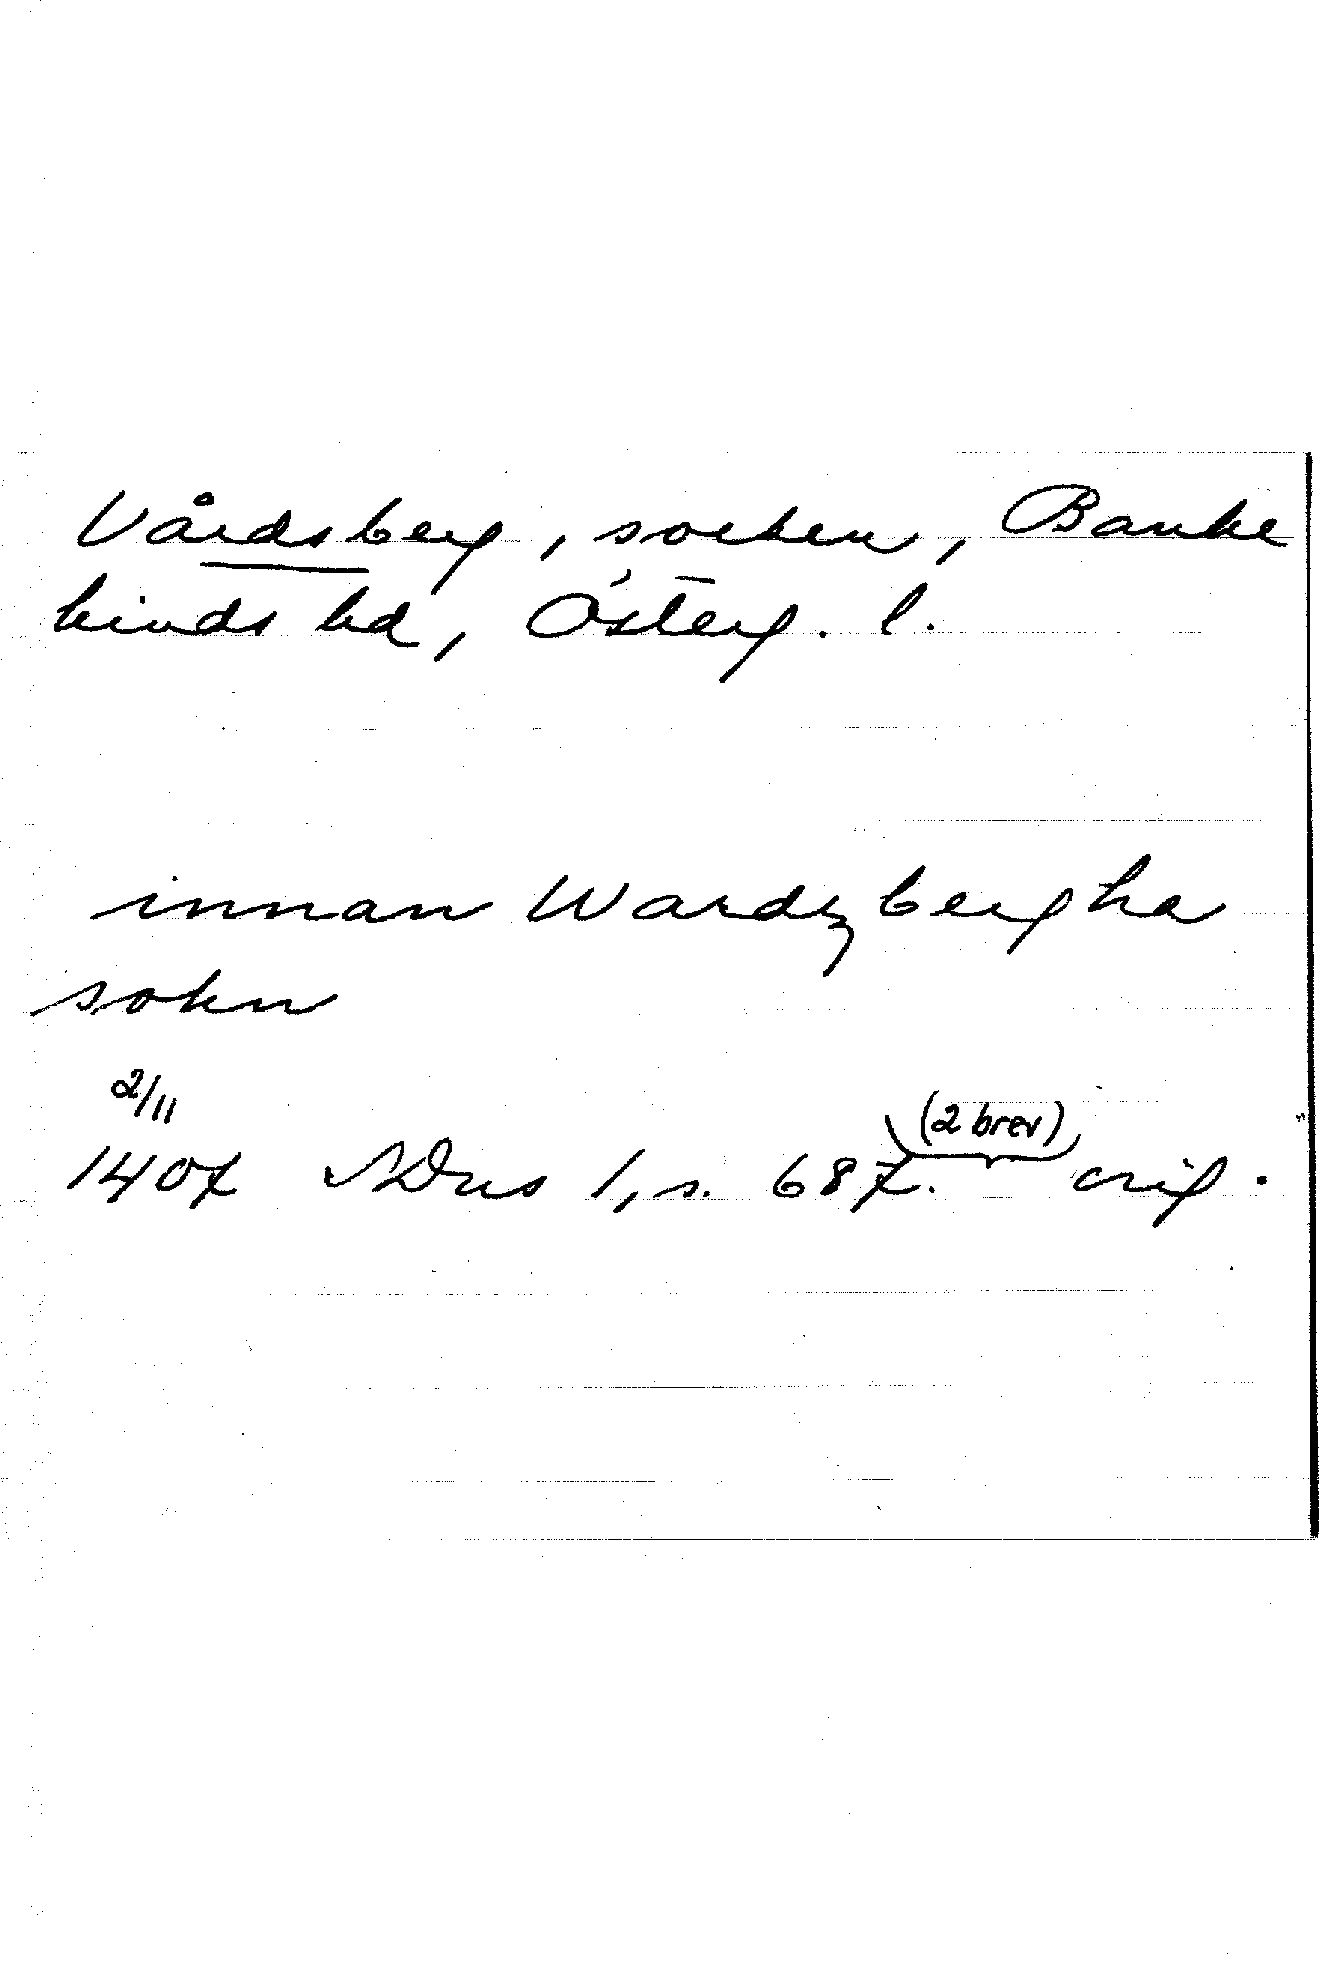 Vårdsberg, socken, Banke
kinds hd, Österg. l.
innan Wardzbergha
sokn
2/11
(2 brev)
1407 SDns 1, s. 687. orig.